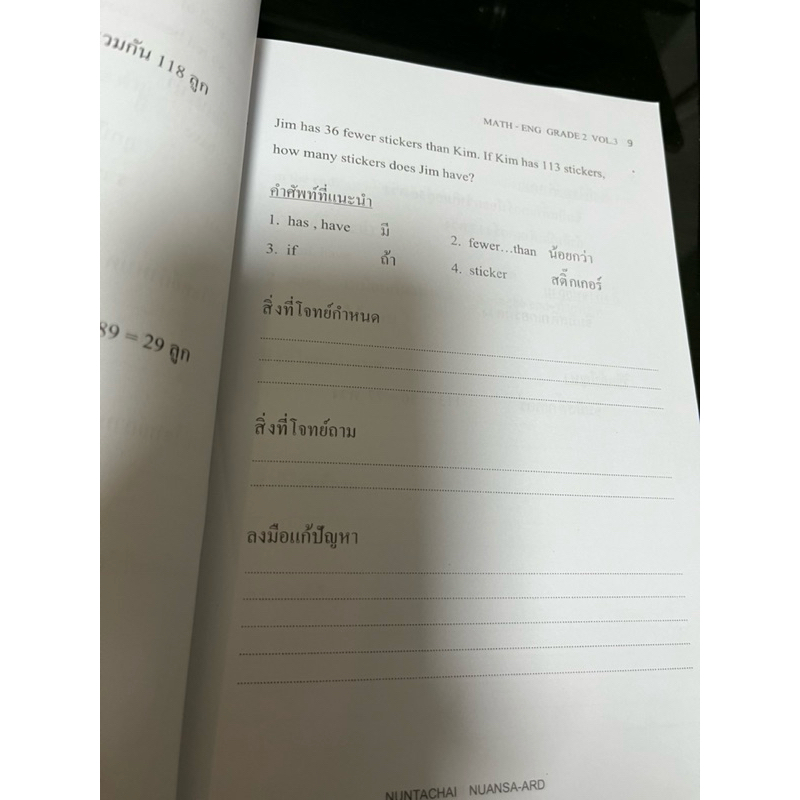 วมกัน 118 ลูก
89 = 29 ลูก
MATH - ENG GRADE 2 VOL.3 9
Jim has 36 fewer stickers than Kim. If Kim has 113 stickers,
how many stickers does Jim have?
คำศัพท์ที่แนะนำ
1. has , have มี 2. fewer...than น้อยกว่า
3. if ถ้า 4. sticker สติ๊กเกอร์
สิ่งที่โจทย์กำหนด
สิ่งที่โจทย์ถาม
ลงมือแก้ปัญหา
NUNTACHAI NUANSA-ARD